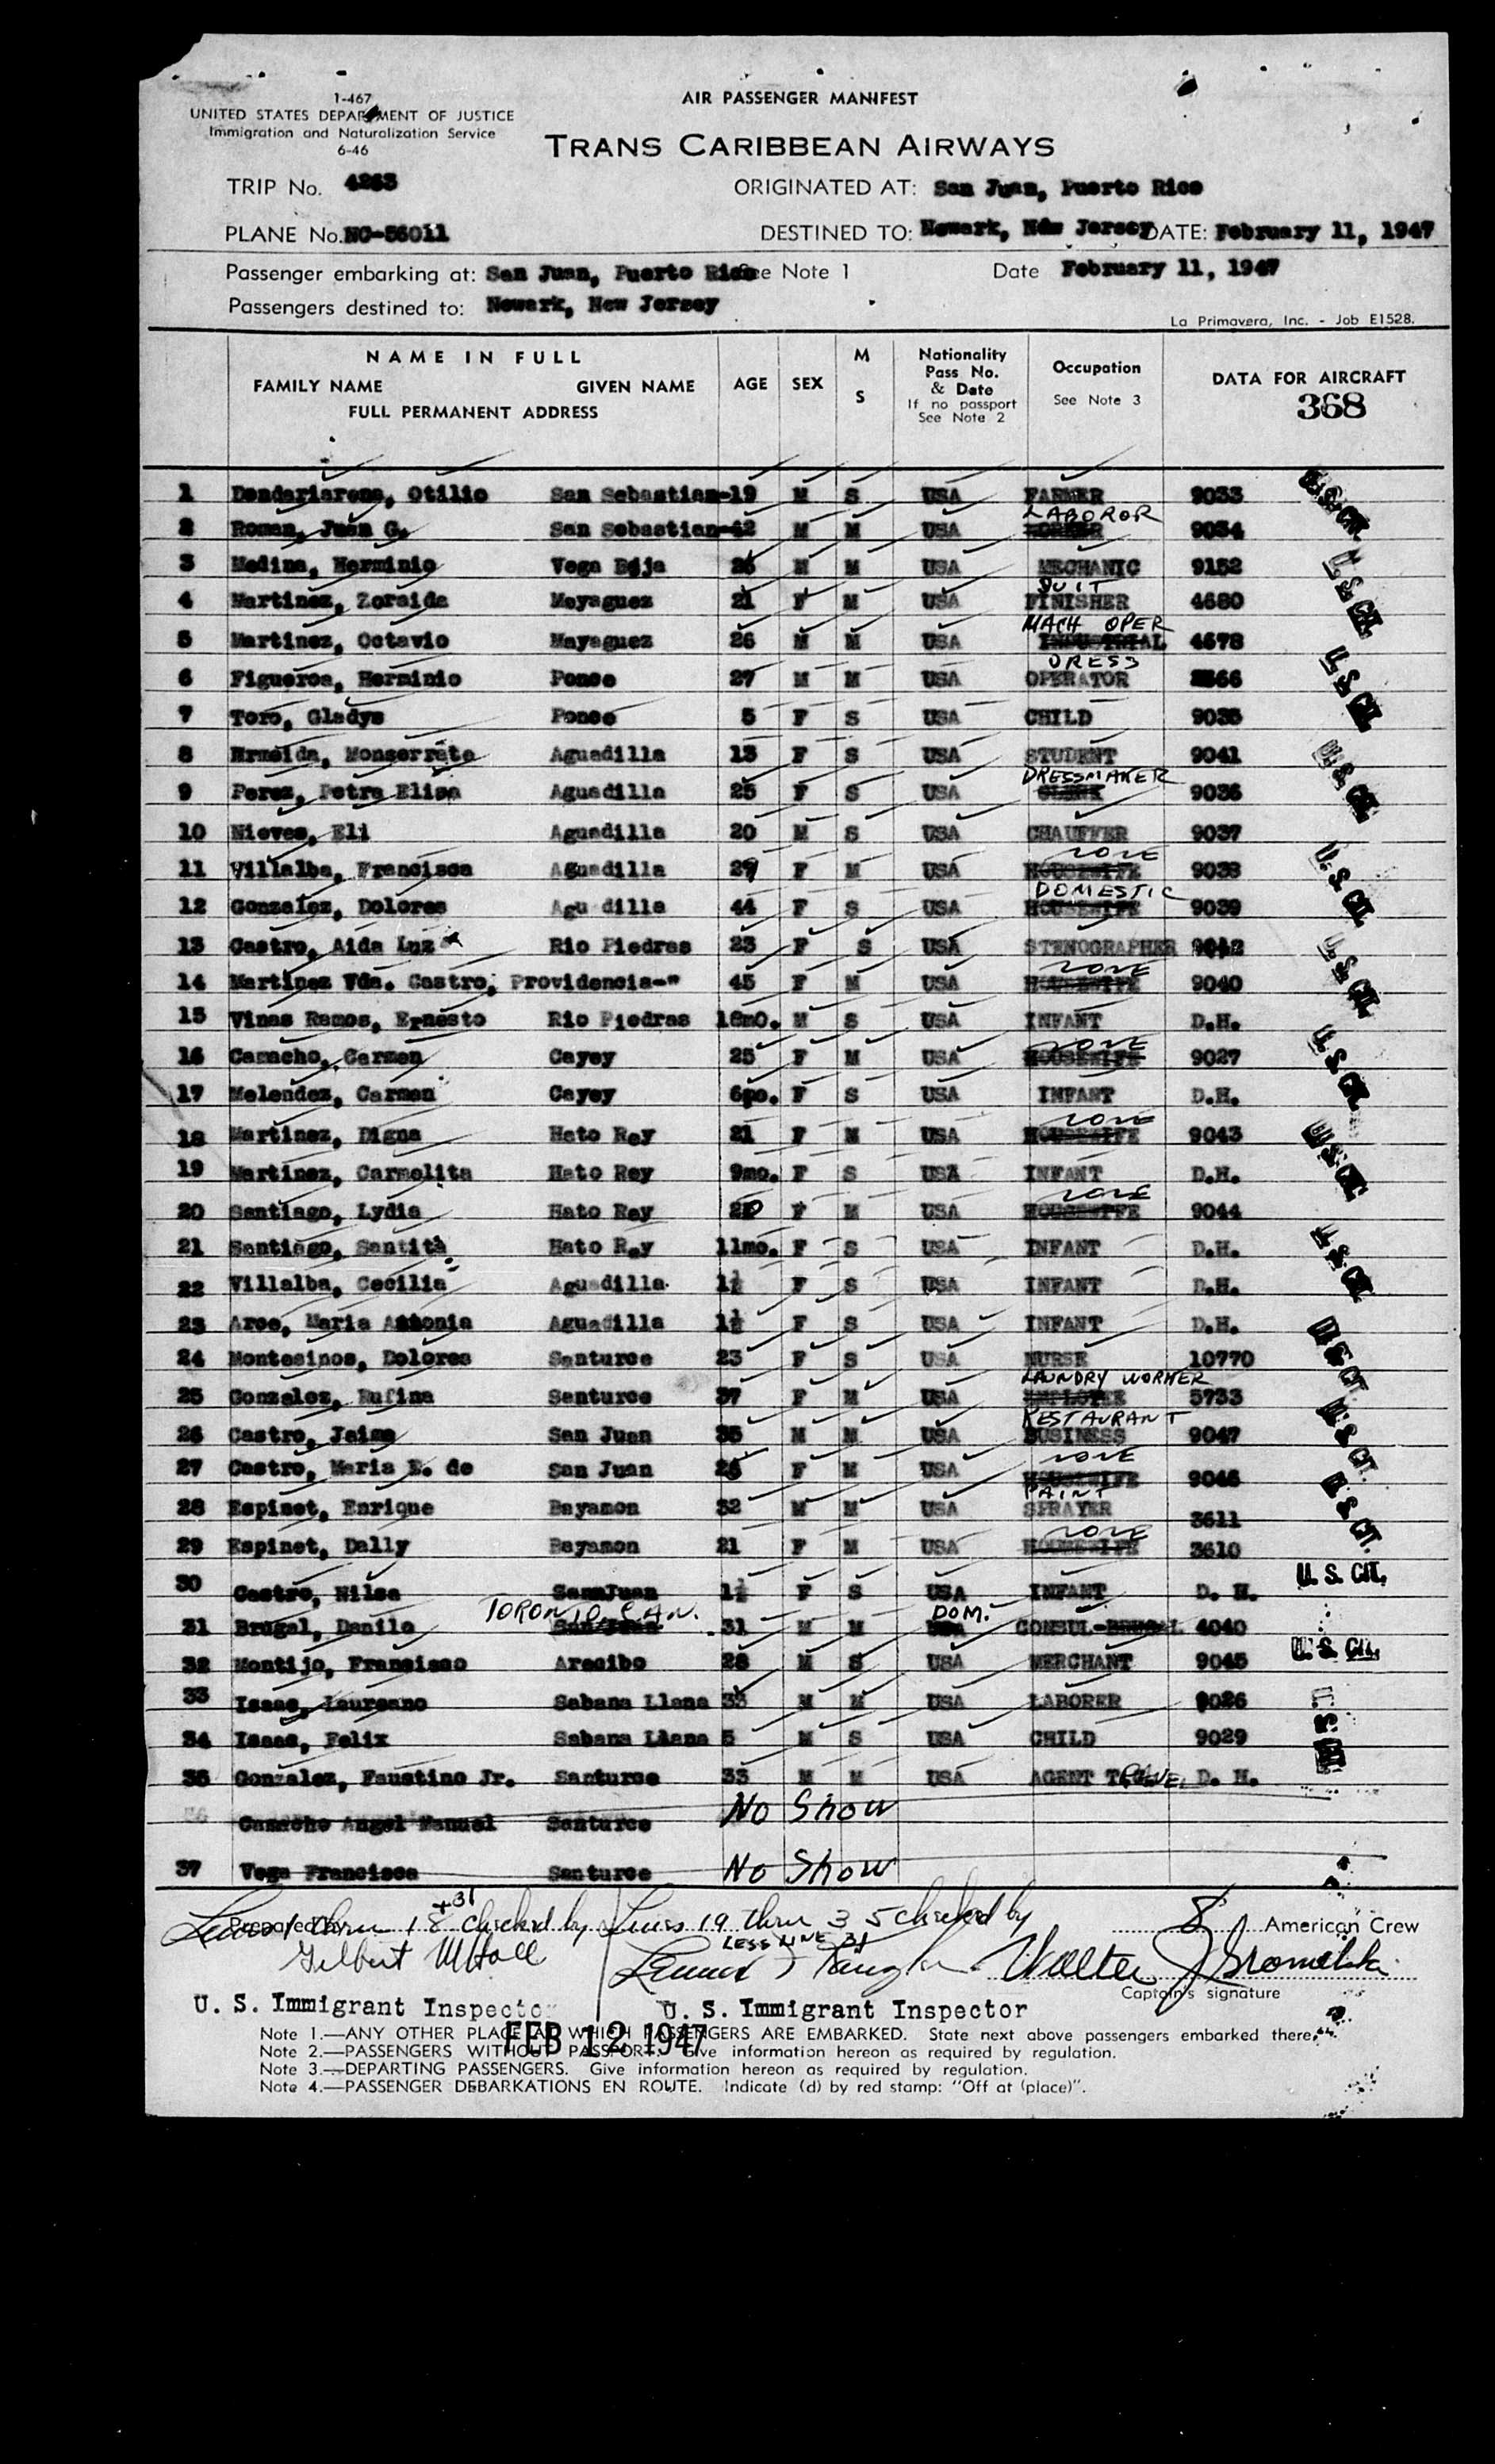 1-467
UNITED STATES DEPARTMENT OF JUSTICE
Immigration and Naturalization Service
6-46
AIR PASSENGER MANIFEST
TRANS CARIBBEAN AIRWAYS
TRIP No. 4263
ORIGINATED AT: San Juan, Puerto Rico
PLANE No. NC-56011
DESTINED TO: Newark, New Jersey DATE: February 11, 1947
Passenger embarking at: San Juan, Puerto Rico See Note 1 Date February 11, 1947
Passengers destined to: Newark, New Jersey
La Primavera, Inc. - Job E1528.
NAME IN FULL
FAMILY NAME GIVEN NAME
FULL PERMANENT ADDRESS
AGE SEX M S
Nationality Pass No. & Date If no passport See Note 2
Occupation See Note 3
DATA FOR AIRCRAFT
368
1 Otilio San Sebastian-19 M S USA FARMER 9033
2 Roman, Juan G. San Sebastian-42 M M USA LABOROR 9034
3 Medina, Herminio Vega Baja 26 M M USA MECHANIC 9152
4 Martinez, Zoraida Mayaguez 21 F M USA SUIT FINISHER 4680
5 Martinez, Octavio Mayaguez 26 M M USA MACH OPER INDUSTRIAL 4678
6 Figueroa, Herminio Ponce 27 M M USA DRESS OPERATOR
7 Toro, Gladys Ponce 5 F S USA CHILD 9035
8 Monserrate Aguadilla 13 F S USA STUDENT 9041
9 Perez, Petra Elisa Aguadilla 25 F S USA DRESSMAKER CLERK 9036
10 Nieves, Eli Aguadilla 20 M S USA CHAUFFER 9037
11 Villalba, Francisca Aguadilla 29 F M USA NONE HOUSEWIFE 9038
12 Gonzalez, Dolores Agu dilla 44 F S USA DOMESTIC HOUSEWIFE 9039
13 Castro, Aida Luz Rio Piedras 23 F S USA STENOGRAPHER 9042
14 Martinez Vda. Castro, Providencia-" 45 F M USA NONE HOUSEWIFE 9040
15 Vinas Ramos, Ernesto Rio Piedras 18mo. M S USA INFANT D.H.
16 Camacho, Carmen Cayey 25 F M USA NONE HOUSEWIFE 9027
17 Melendez, Carmen Cayey 6mo. F S USA INFANT D.H.
18 Martinez, Digna Hato Rey 21 F M USA NONE HOUSEWIFE 9043
19 Martinez, Carmelita Hato Rey 9mo. F S USA INFANT D.H.
20 Santiago, Lydia Hato Rey 20 F M USA NONE HOUSEWIFE 9044
21 Santiago, Santita Hato Rey 11mo. F S USA INFANT D.H.
22 Villalba, Cecilia Aguadilla 1½ F S USA INFANT D.H.
23 Arce, Maria Antonia Aguadilla 1½ F S USA INFANT D.H.
24 Montesinos, Dolores Santurce 23 F S USA NURSE 10770
25 Gonzalez, Rufina Santurce 37 F M USA LAUNDRY WORKER EMPLOYEE 5733
26 Castro, Jaime San Juan 35 M M USA RESTAURANT BUSINESS 9047
27 Castro, Maria E. de San Juan 26 F M USA NONE HOUSEWIFE 9046
28 Espinet, Enrique Bayamon 32 M M USA PAINT SPRAYER 3611
29 Espinet, Dally Bayamon 21 F M USA NONE HOUSEWIFE 3610
30 Castro, Nilsa San Juan 1½ F S USA INFANT D. H.
31 Brugal, Danilo TORONTO, CAN. San Juan 31 M M DOM. USA CONSUL 4040
32 Montijo, Francisco Arecibo 28 M S USA MERCHANT 9045
33 Isaac, Laureano Sabana Llana 33 M M USA LABORER 9026
34 Isaac, Felix Sabana Llana 5 M S USA CHILD 9029
35 Gonzalez, Faustino Jr. Santurce 33 M M USA AGENT D. H.
36 Camacho Angel Manuel Santurce No Show
37 Vega Francisca Santurce No Show
U. S. CIT.
U. S. CIT.
Prepared by
Lines 1 thru 18 +31 checked by
Gilbert M Hall
U. S. Immigrant Inspector
Lines 19 thru 35 checked by
LESS LINE 31
U. S. Immigrant Inspector
8 American Crew
Walter J
Captain's signature
FEB 12 1947
Note 1.—ANY OTHER PLACE AT WHICH PASSENGERS ARE EMBARKED. State next above passengers embarked there.
Note 2.—PASSENGERS WITHOUT PASSPORT. Give information hereon as required by regulation.
Note 3.—DEPARTING PASSENGERS. Give information hereon as required by regulation.
Note 4.—PASSENGER DEBARKATIONS EN ROUTE. Indicate (d) by red stamp: "Off at (place)".